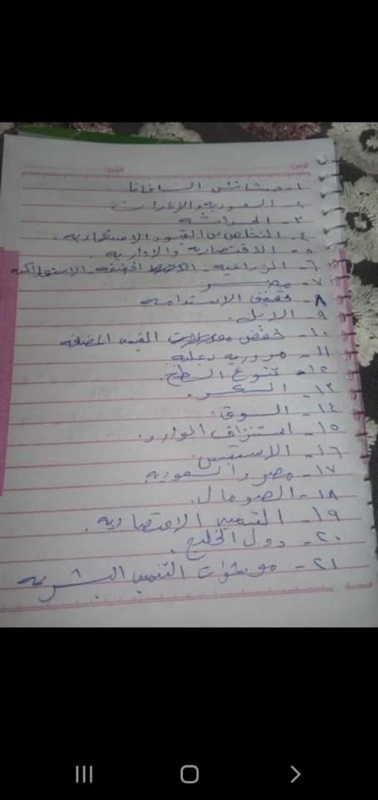 ١- حشائش السافانا
٢- السعودية والإمارات
٣- الحراثة
٤- التخلص من القيود الاستعمارية.
٥- الاقتصادية والإدارية.
٦- الزراعية - الخفيفة الاستهلاكية
٧- مصر
٨- تحقيق الاستدامة
٩- الابل
١٠- خفض القيمة المضافة
١١-
١٢- تنوع السطح.
١٣- السكر.
١٤- السوق.
١٥- استنزاف الموارد.
١٦- الاسمنت
١٧- مصر والسعودية
١٨- الصومال.
١٩- التنمية الاقتصادية.
٢٠- دول الخليج.
٢١- مؤشرات التنمية البشرية